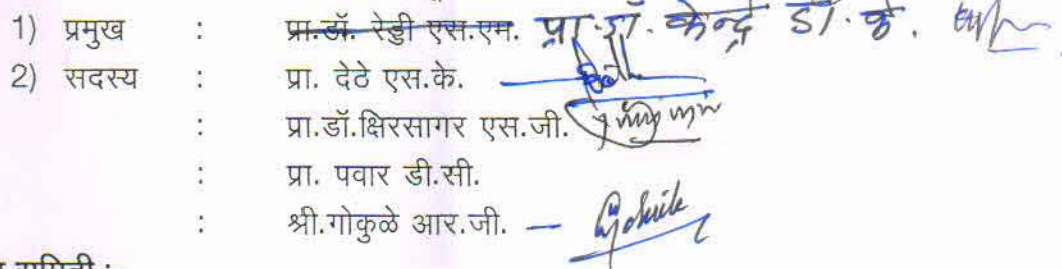 1) प्रमुख : प्रा.डॉ. रेड्डी एस.एम. प्रा.डॉ. केन्द्रे डी. के.
2) सदस्य : प्रा. देठे एस.के.
: प्रा.डॉ.क्षिरसागर एस.जी.
: प्रा. पवार डी.सी.
: श्री.गोकुळे आर.जी. —
समिती :